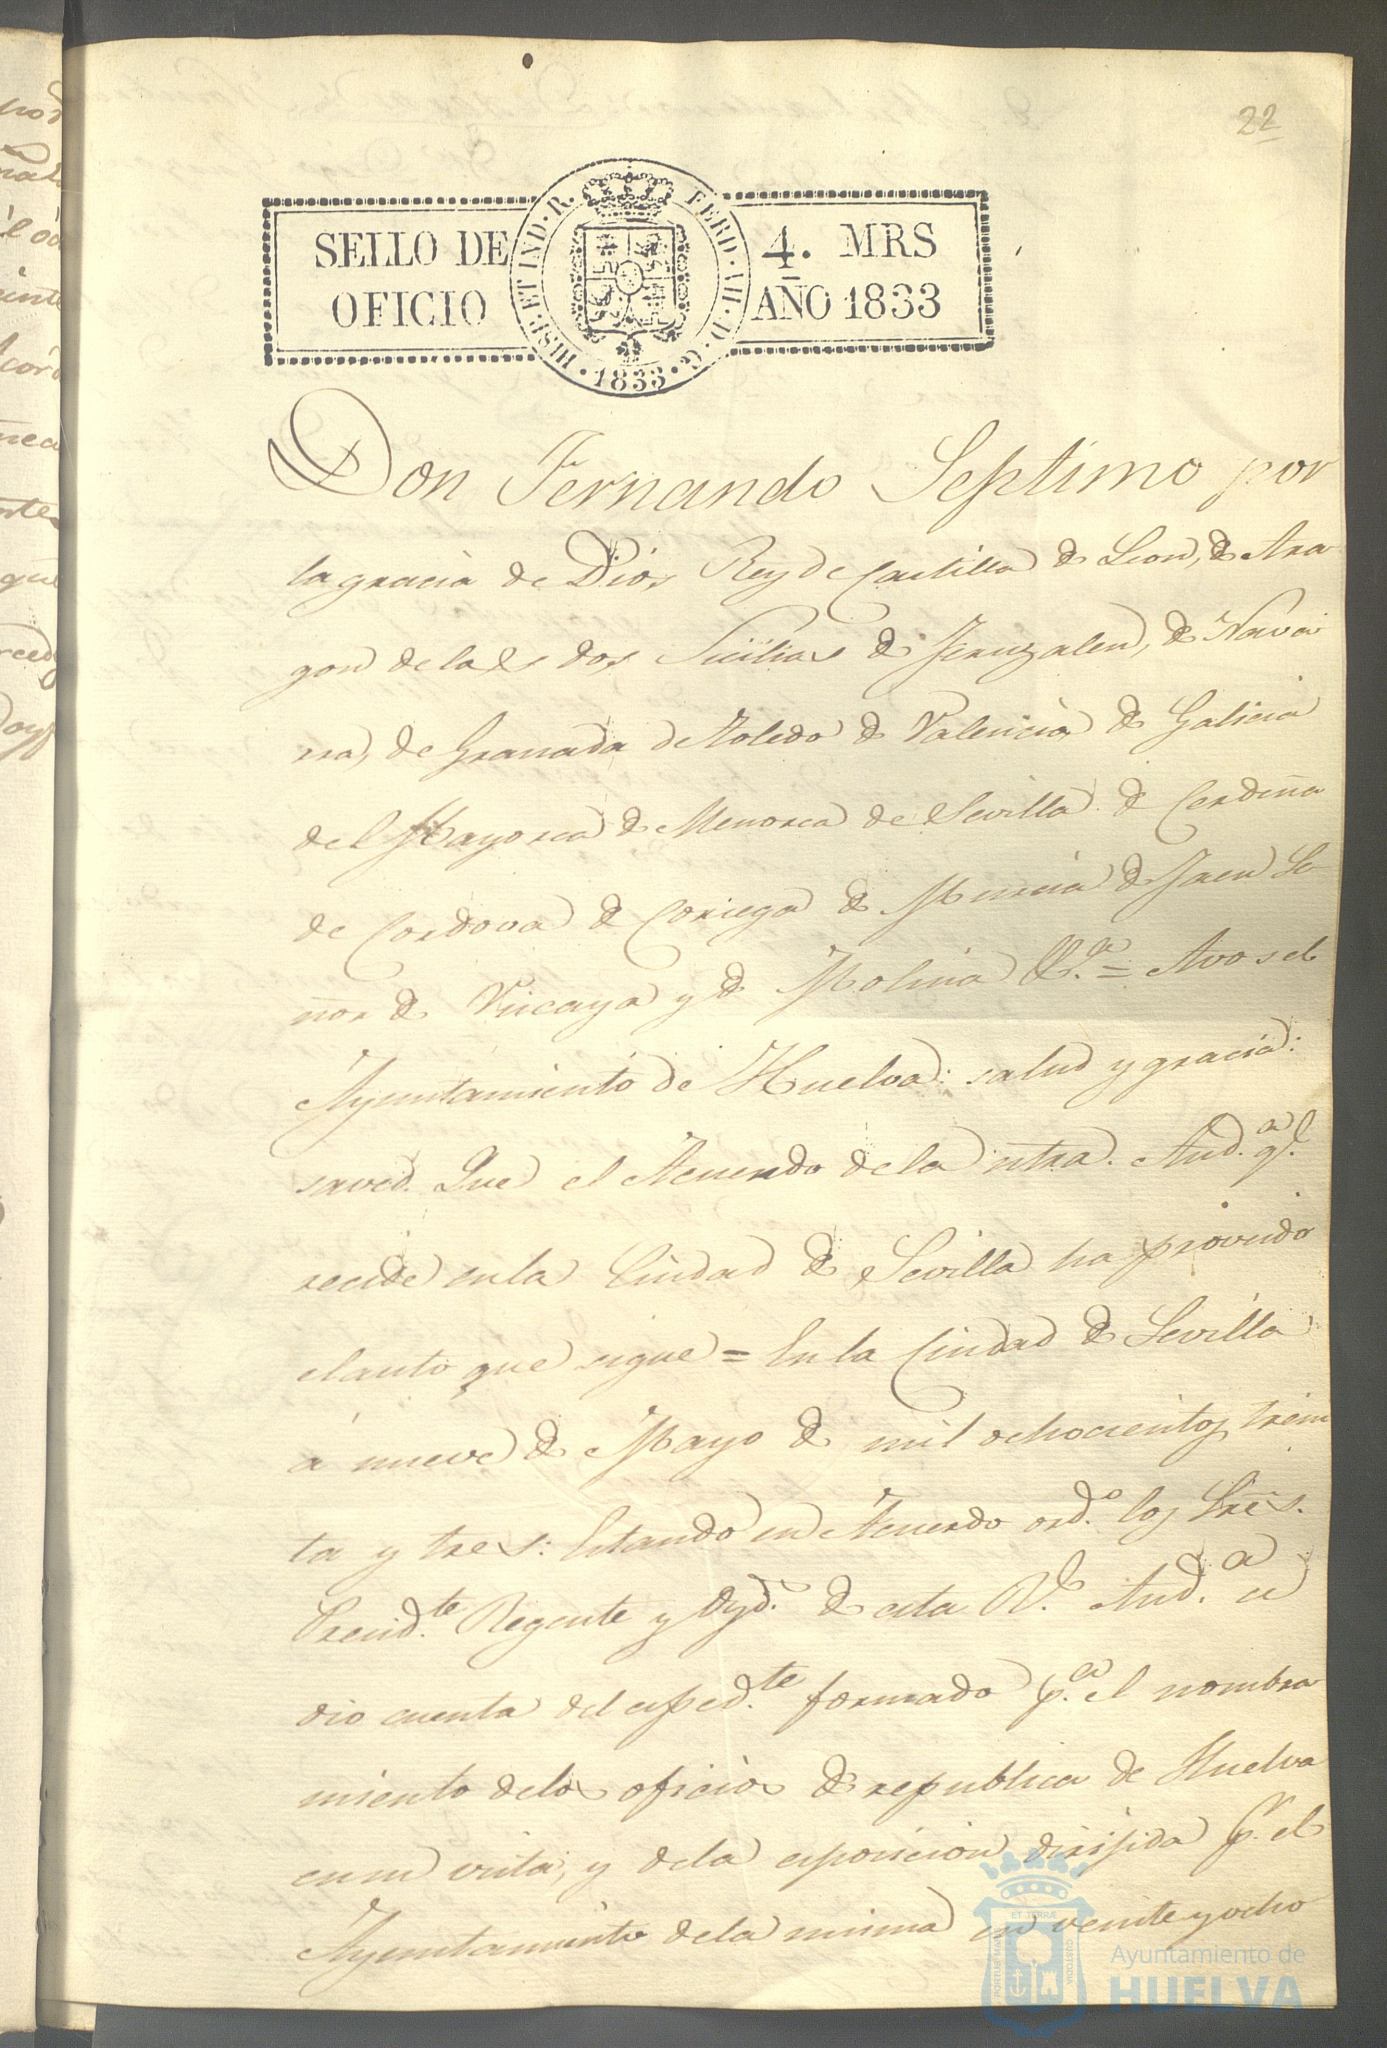 22
SELLO DE 4. MRS
OFICIO AÑO 1833
HISP. ET IND. R. FERD. VII. D. G. 1833
Don Fernando Septimo por
la gracia de Dios Rey de Castilla de Leon, de Ara
gon de las dos Sicilias de Jeruzalen, de Nava
rra, de Granada de Toledo de Valencia de Galicia
del Mayorca de Menorca de Sevilla de Cerdeña
de Cordova de Coriega de Murcia de Jaen Se
ñor de Viscaya y de Molina &.ª = A vos el
Ayuntamiento de Huelva: salud y gracia:
saved. Que el Acuerdo de la ntra. Aud.ª q.
recide en la Ciudad de Sevilla ha proveido
el auto que sigue = En la Ciudad de Sevilla
á nueve de Mayo de mil ochocientos trein
ta y tres: Estando en Acuerdo ord.º los Sres.
Presid.te Regente y Oyd.s de esta R.l Aud.a se
dio cuenta del esped.te formado p.a el nombra
miento de los oficios de republica de Huelva
en su vista, y de la esposicion dirijida p.r el
Ayuntamiento de la misma en veinte y ocho
ET TERRÆ
CUSTODIA
Ayuntamiento de
HUELVA